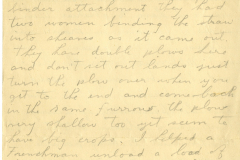 binder attachment they had
two women binding the straw
into sheaves as it came out.
They have double plows here
and don't set out lands just
turn the plow over when you
get to the end and come back
in the same furrow, the plow
very shallow too yet seem to
have big crops. I helped a
Frenchman unload a load of